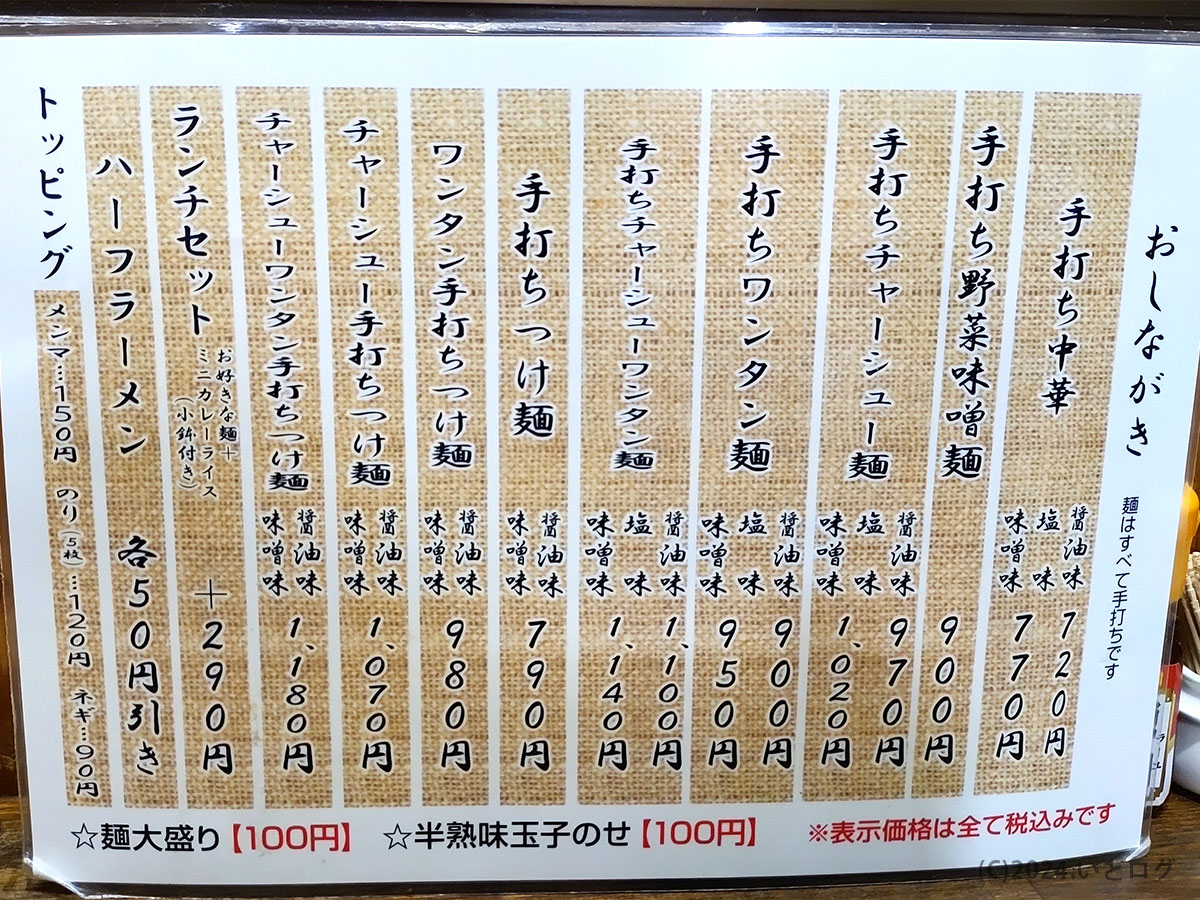 おしながき
麺はすべて手打ちです
手打ち中華
醤油味
塩味
720円
味噌味
770円
手打ち野菜味噌麺
900円
手打ちチャーシュー麺
醤油味
塩味
970円
味噌味
1,020円
手打ちワンタン麺
醤油味
塩味
900円
味噌味
950円
手打ちチャーシューワンタン麺
醤油味
塩味
1,100円
味噌味
1,140円
手打ちつけ麺
醤油味
味噌味
790円
ワンタン手打ちつけ麺
醤油味
味噌味
980円
チャーシュー手打ちつけ麺
醤油味
味噌味
1,070円
チャーシューワンタン手打ちつけ麺
醤油味
味噌味
1,180円
ランチセット
お好きな麺+
ミニカレーライス
(小鉢付き)
+290円
ハーフラーメン 各50円引き
トッピング
メンマ…150円 のり(5枚)…120円 ネギ…90円
☆麺大盛り【100円】 ☆半熟味玉子のせ【100円】 ※表示価格は全て税込みです
(C)2024.いとログ